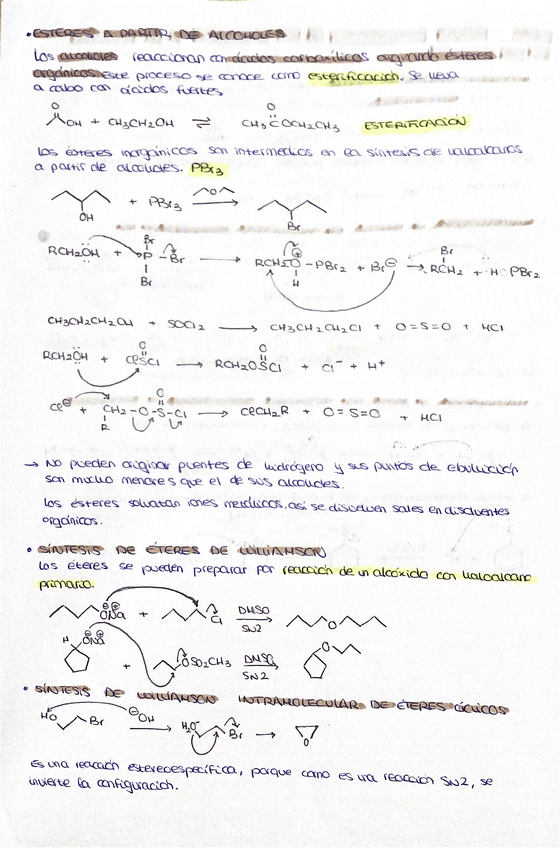 • ESTERES A PARTIR DE ALCOHOLES
Los alcoholes reaccionan con ácidos carboxílicos originando ésteres
orgánicos. Este proceso se conoce como esterificación. Se lleva
a cabo con ácidos fuertes
O O
OH + CH3CH2OH ⇌ CH3COCH2CH3 ESTERIFICACIÓN
los ésteres inorgánicos son intermedios en la síntesis de haloalcanos
a partir de alcoholes. PBr3
OH + PBr3 O → Br
RCH2OH + Br P Br Br → RCH2O⊕ H – PBr2 + Br⊖ → Br RCH2 + HOPBr2
CH3CH2CH2OH + SOCl2 → CH3CH2CH2Cl + O=S=O + HCl
RCH2OH + ClSCl O → RCH2OSCl O + Cl⁻ + H⁺
Cl⊖ + CH2–O–S–Cl O R → ClCH2R + O=S=O + HCl
→ No pueden originar puentes de hidrógeno y sus puntos de ebullición
son mucho menores que el de sus alcoholes.
los ésteres solvatan iones metálicos, así se disuelven sales en disolventes
orgánicos.
• SÍNTESIS DE ÉTERES DE WILLIAMSON
los éteres se pueden preparar por reacción de un alcóxido con haloalcano
primario.
⊖ ⊕ ONa + Cl DMSO SN2 → O
H ⊖ ⊕ ONa + OSO2CH3 DMSO SN2 → O
• SÍNTESIS DE WILLIAMSON INTRAMOLECULAR DE ÉTERES CÍCLICOS
HO Br ⊖OH → Br → O
Es una reacción estereoespecífica, porque como es una reacción SN2, se
invierte la configuración.